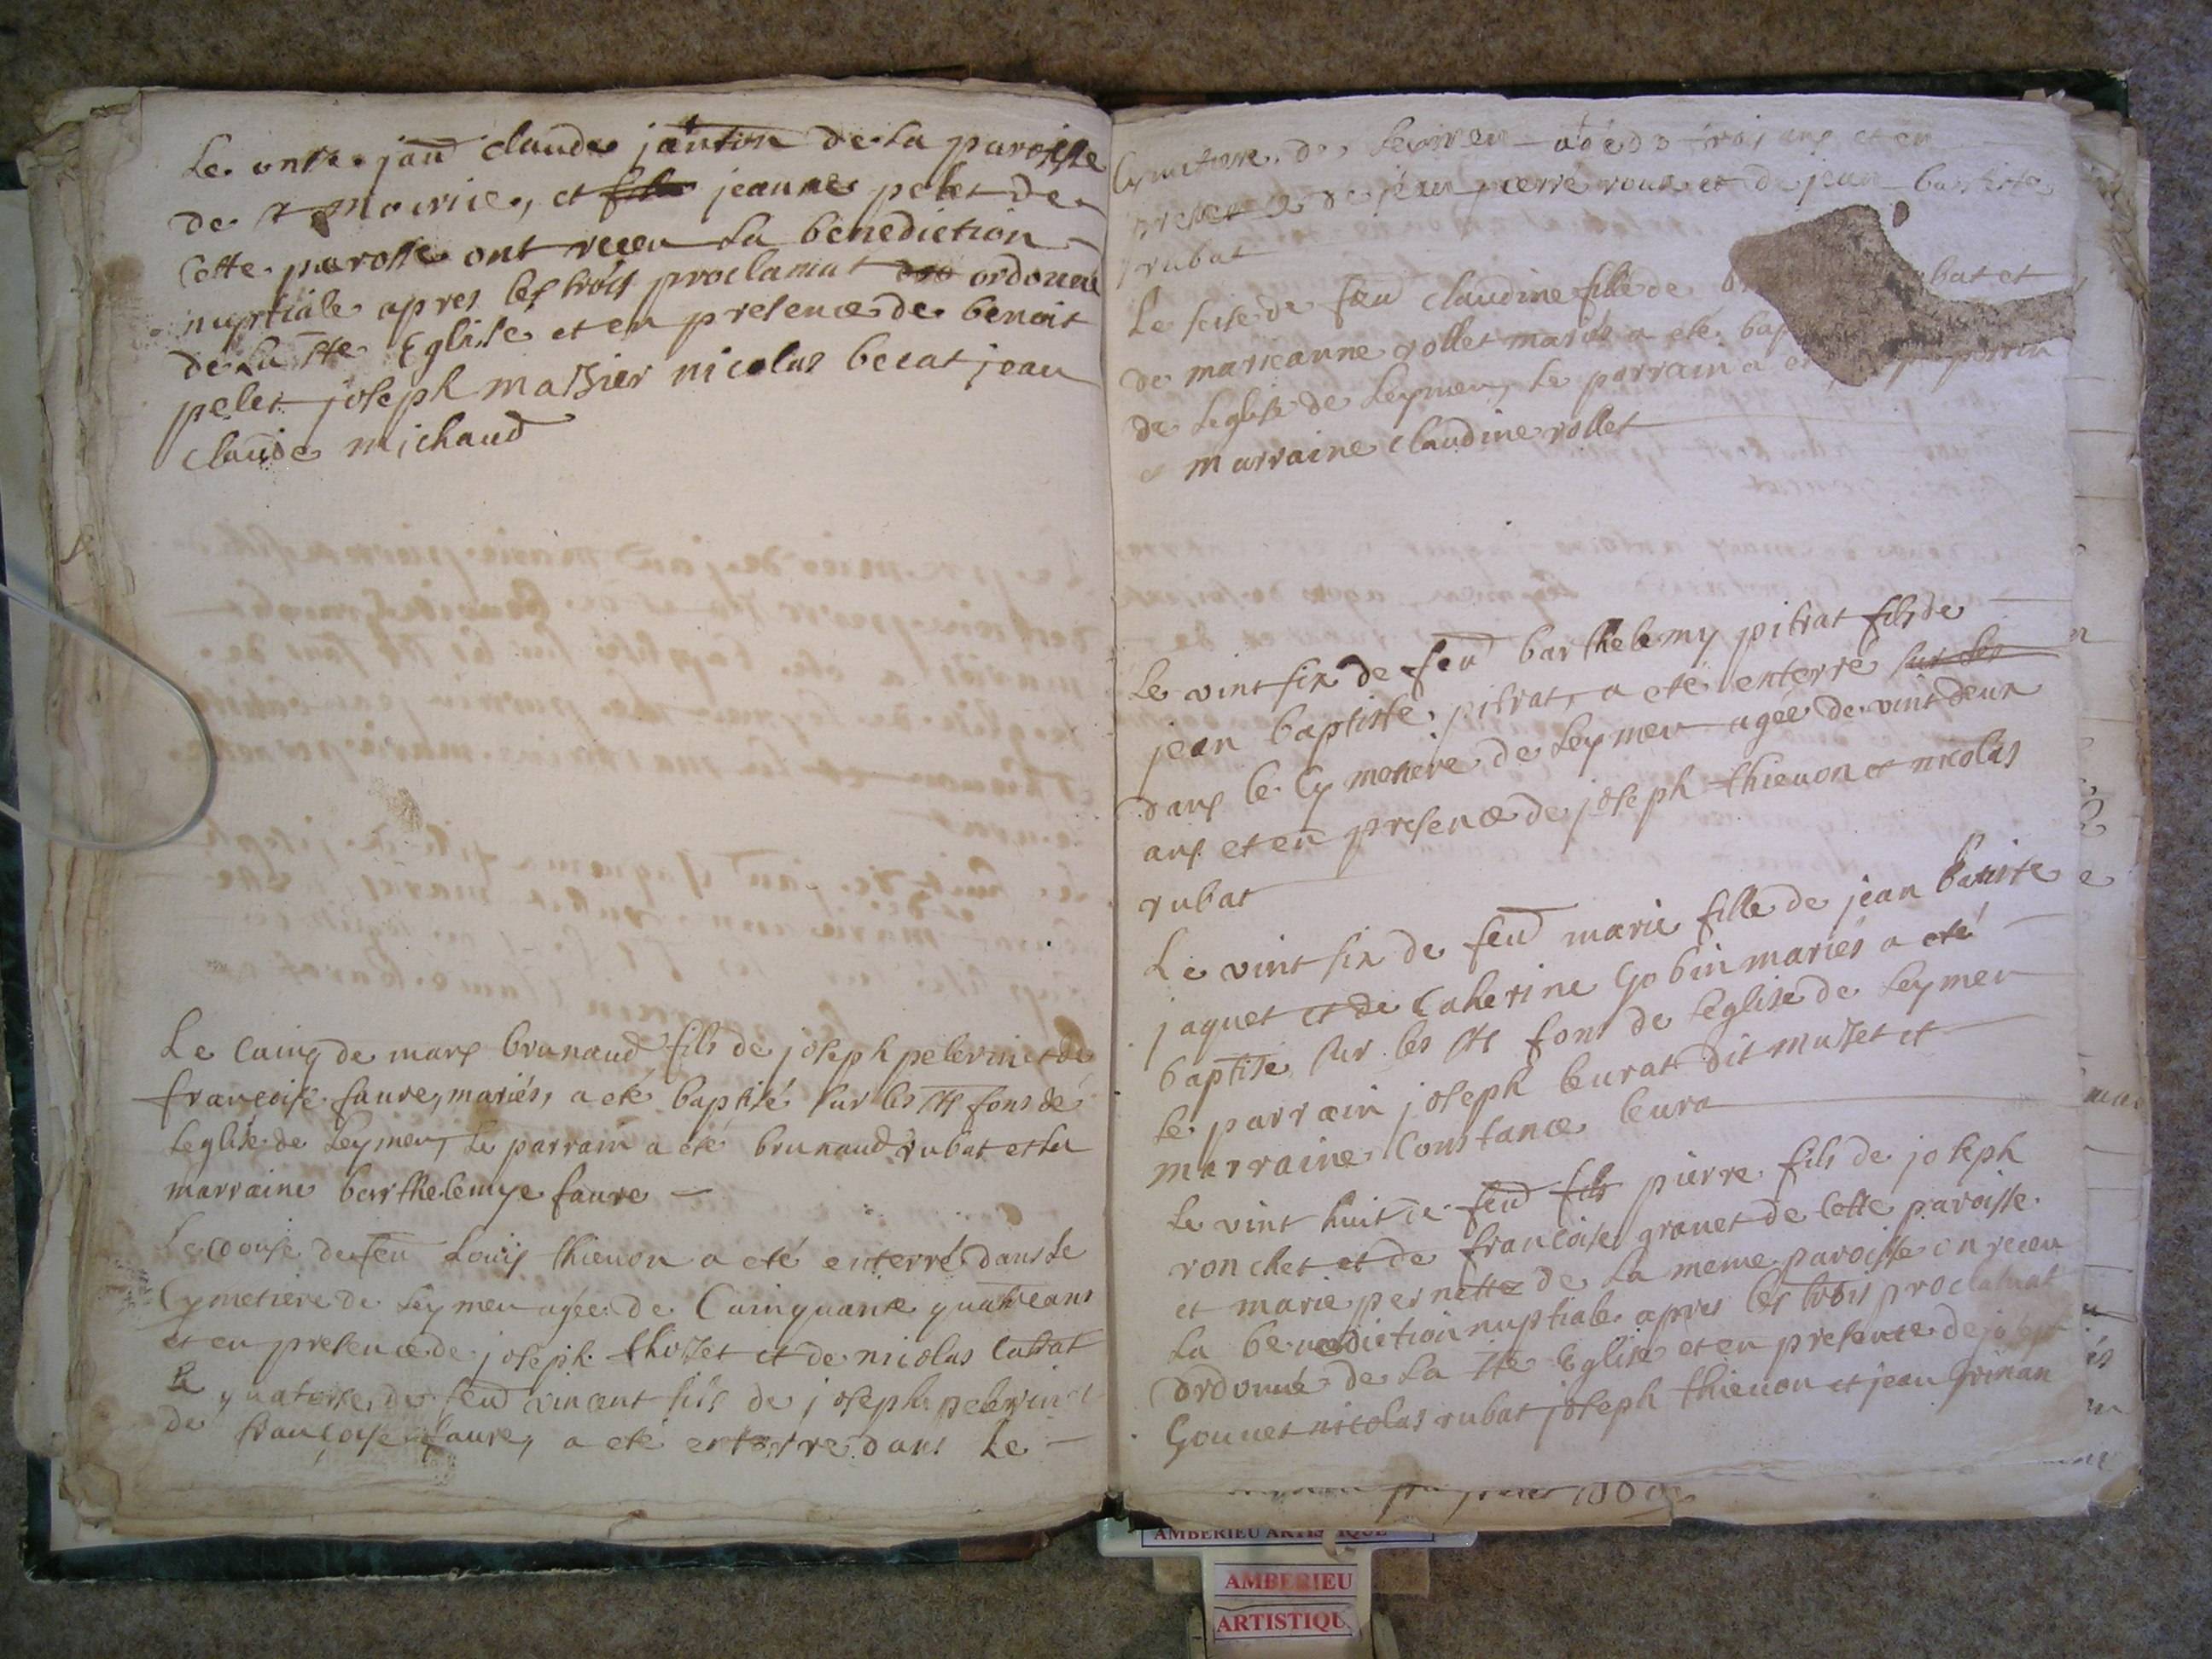 Le onze janv claude janton de la paroisse
de st mourice, et jeanne pelet de
Cette parosse ont receu la benediction
nuptiale apres les trois proclamat ordonnee
de la ste Eglise et en presence de benoit
pelet joseph massier nicolas becat jean
claude michaud
Le Cuinq de mars brunaud fils de joseph pelerin et de
francoise faure, mariés, a eté baptisé sur les sts fons de
Leglise de Leymen, Le parrain a eté brunaud rubat et la
marraine barthelemye faure
Le douse de feu Louis thieuon a eté enterré dans Le
Cymetiere de Leymen agée de Cuinquante quatre ans
et en presence de joseph thosset et de nicolas
Le quatorse de feu vincent fils de joseph pelerin et
de francoise faure, a eté enterre dans Le
Cymetiere de Leymen agé de trois ans et en
presence de jean pierre roux et de jean baptiste
rubat
Le seise de feu claudine fille de bat et
de marieanne rollet mariés a eté bap
de Leglise de Leymen, Le parrain a perrin
et marraine claudine rollet
Le vint six de feu barthelemy pitrat fils de
jean baptiste pitrat, a eté enterré sur les
dans le Cymetiere de Leymen agée de vint deux
ans et en presence de joseph thieuon et nicolas
rubat
Le vint six de feu marie fille de jean batiste
jaquet et de Catherine Gobin mariés a eté
baptise sur les sts fons de Leglise de Leymen
Le parrain joseph leurat dit musset et
marraine Constance leura
Le vint huit de feu fils pierre fils de joseph
ronchet et de francoise grauet de Cette paroisse
et marie pernette de La meme paroisse on receu
La benediction nuptiale apres les trois proclamat
ordonné de La ste Eglise et en presence de joseph
Gounet nicolas rubat joseph thieuon et jean Grinan
AMBERIEU ARTISTIQUE
AMBERIEU
ARTISTIQU